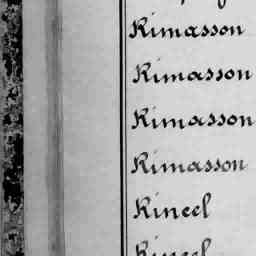 Rimasson
Rimasson
Rimasson
Rimasson
Rincel
Rincel